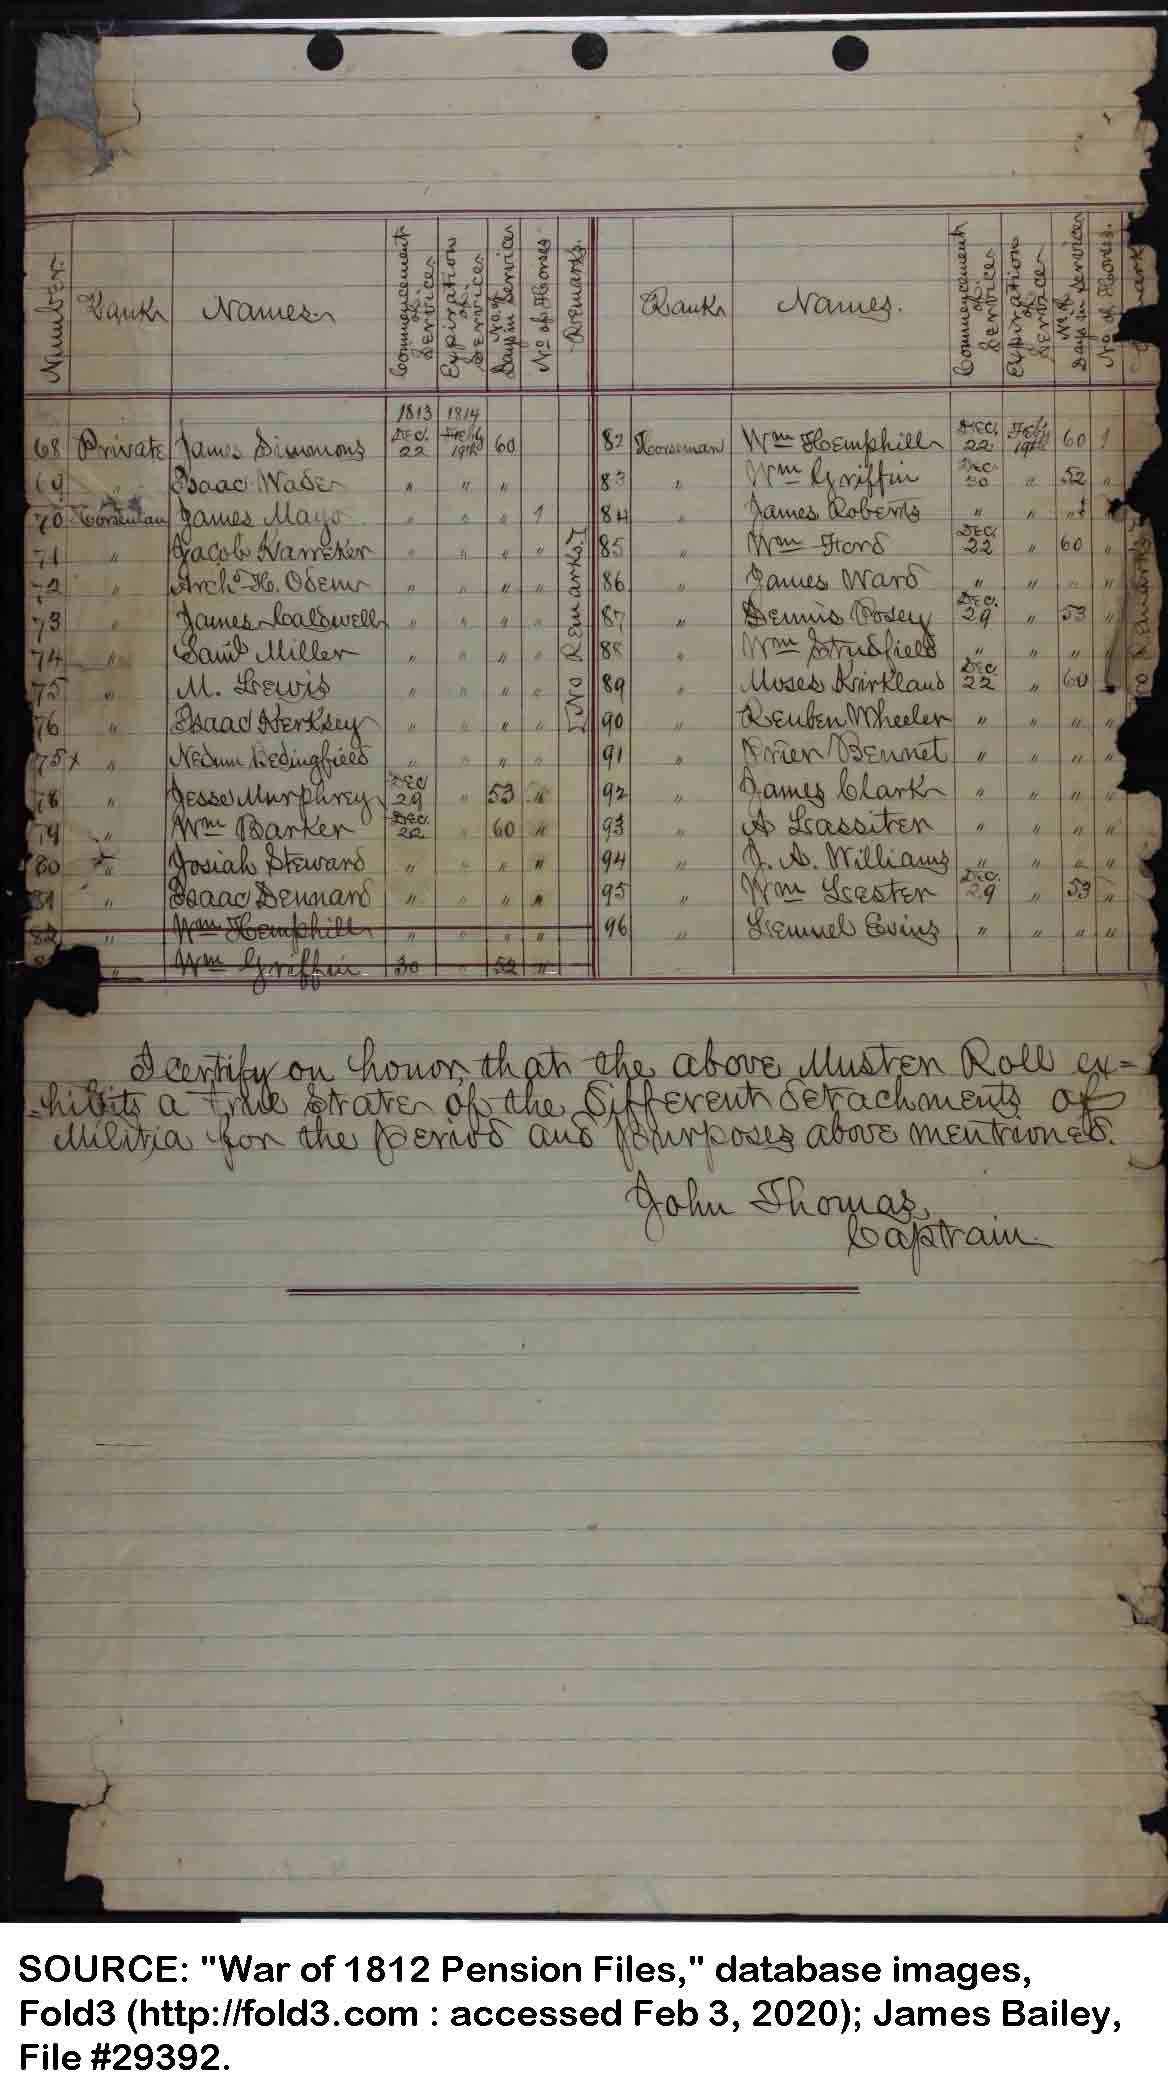 Number. Rank Names. Commencement of Services Expiration of Services No. of Days in Service No. of Horses Remarks. Rank Names. Commencement of Services Expiration of Service No. of Days in Service No. of Horses.
1813 1814
68 Private James Simmons Dec. 22 Feb'y 19th 60 82 Horseman Wm Hemphill Dec. 22 Feb. 19th 60 1
69 " Isaac Wade " " " 83 " Wm Griffin Dec. 30 " 52 "
70 Horseman James Mayo " " " 1 84 " James Roberts " " " "
71 " Jacob Harreker " " " " 85 " Wm Ford Dec. 22 " 60 "
72 " Archd H. Odem " " " " 86 " James Ward " " " "
73 " James Caldwell " " " " 87 " Dennis Posey Dec. 29 " 53 "
74 " Saml Miller " " " " 88 " Wm Studfield " " " "
75 " M. Lewis " " " " 89 " Moses Kirkland Dec. 22 " 60 "
76 " Isaac Herksey " " " " 90 " Reuben Wheeler " " " "
75x " Nedum Bedingfield " " " " 91 " Prier Bennet " " " "
78 " Jesse Murphrey Dec 29 " 53 " 92 " James Clark " " " "
79 " Wm Barker Dec. 22 " 60 " 93 " A Lassiter " " " "
80 " Josiah Steward " " " " 94 " J. A. Williams " " " "
81 " Isaac Dennard " " " " 95 " Wm Lester Dec. 29 " 53 "
82 " Wm Hemphill " " " " 96 " Lemuel Evins " " " "
" Wm Griffin 30 " 52 "
[No Remarks.]
No Remarks
I certify on honor, that the above Muster Roll ex-
-hibits a true State of the different detachments of
Militia for the period and purposes above mentioned.
John Thomas,
Captain
SOURCE: "War of 1812 Pension Files," database images,
Fold3 (http://fold3.com : accessed Feb 3, 2020); James Bailey,
File #29392.